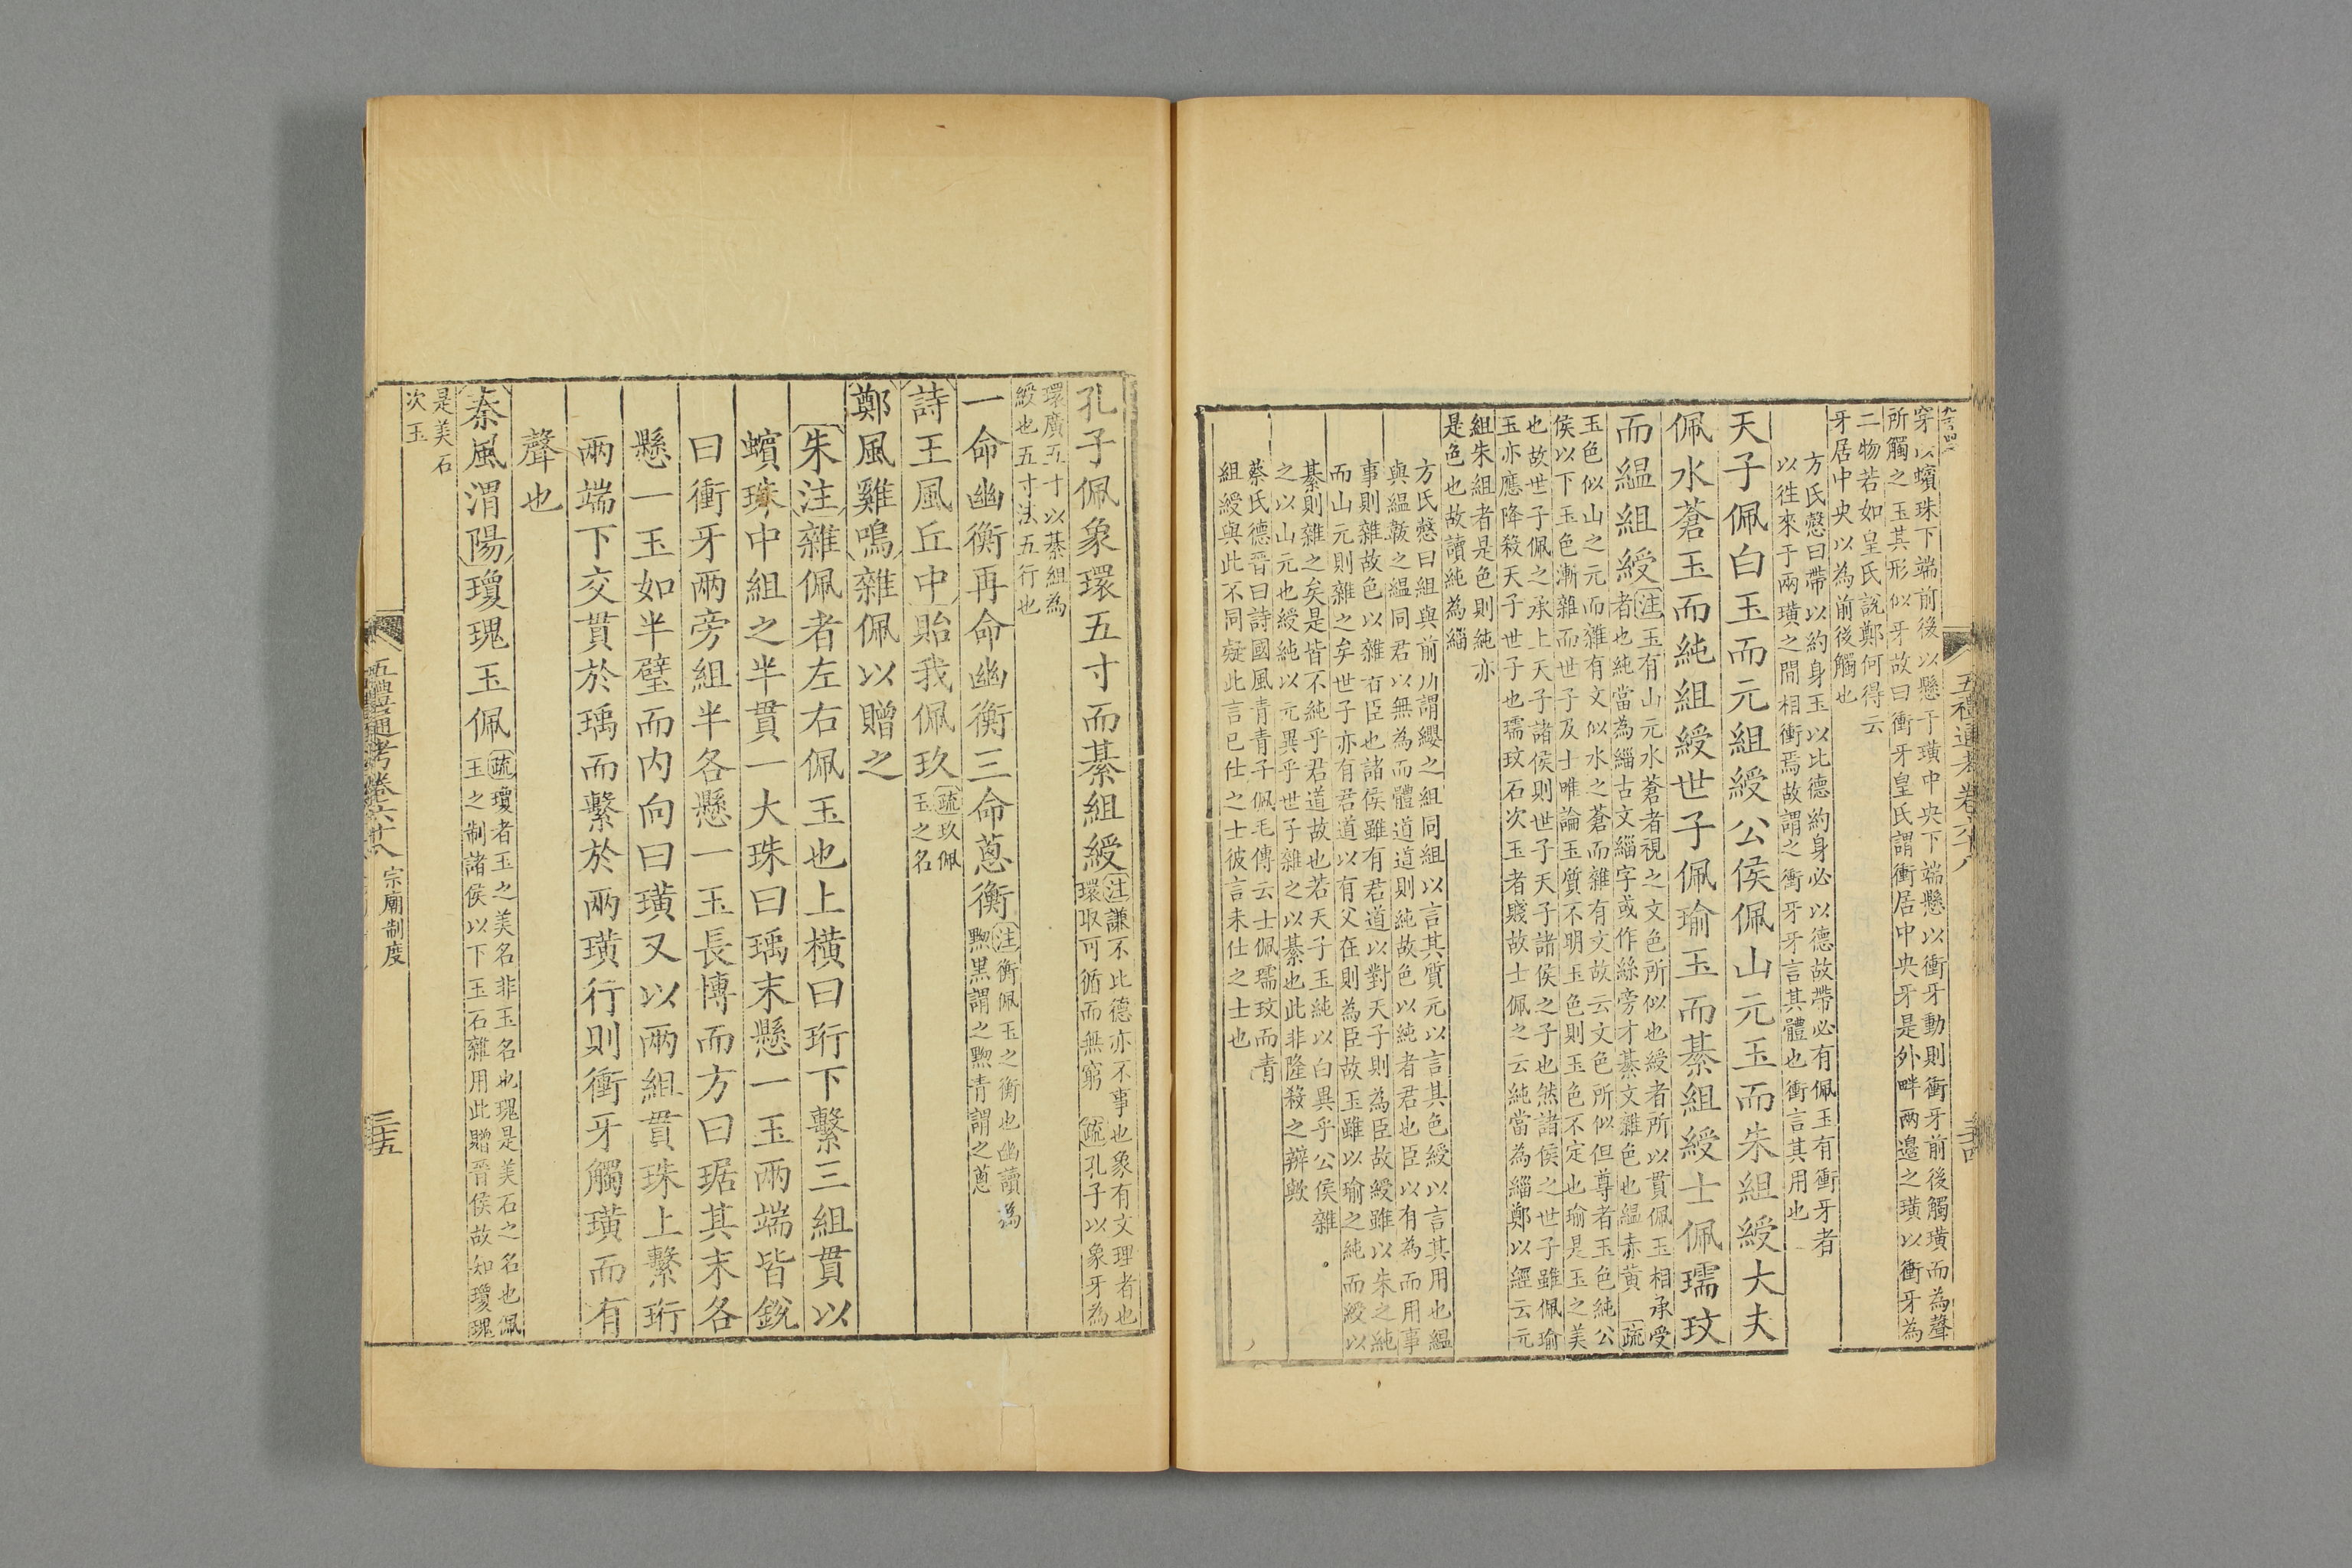 穿以蠙珠下端前後以懸于璜中央下端懸以衝牙動則衝牙前後觸璜而為聲
所觸之玉其形似牙故曰衝牙皇氏謂衝居中央牙是外畔兩邊之璜以衝牙為
二物若如皇氏說鄭何得云
牙居中央以為前後觸也
方氏慤曰帶以約身玉以比德約身必以德故帶必有佩玉有衝牙者
以徃來于兩璜之間相衝焉故謂之衝牙牙言其體也衝言其用也
天子佩白玉而元組綬公侯佩山元玉而朱組綬大夫
佩水蒼玉而純組綬世子佩瑜玉而綦組綬士佩瓀玟
而縕組綬注玉有山元水蒼者視之文色所似也綬者所以貫佩玉相承受
者也純當為緇古文緇字或作絲旁才綦文雜色也縕赤黃 疏
玉色似山之元而雜有文似水之蒼而雜有文故云文色所似但尊者玉色純公
侯以下玉色漸雜而世子及士唯論玉質不明玉色則玉色不定也瑜是玉之美
也故世子佩之承上天子諸侯則世子天子諸侯之子也然諸侯之世子雖佩瑜
玉亦應降殺天子世子也瓀玟石次玉者賤故士佩之云純當為緇鄭以經云元
組朱組者是色則純亦
是色也故讀純為緇
方氏慤曰組與前所謂纓之組同組以言其質元以言其色綬以言其用也縕
與縕韍之縕同君以無為而體道道則純故色以純者君也臣以有為而用事
事則雜故色以雜者臣也諸侯雖有君道以對天子則為臣故綬雖以朱之純
而山元則雜之矣世子亦有君道以有父在則為臣故玉雖以瑜之純而綬以
綦則雜之矣是皆不純乎君道故也若天子玉純以白異乎公侯雜
之以山元也綬純以元異乎世子雜之以綦也此非隆殺之辨歟
蔡氏德晉曰詩國風青青子佩毛傳云士佩瓀玟而青
組綬與此不同疑此言已仕之士彼言未仕之士也
五禮通考卷六十八
三十四
孔子佩象環五寸而綦組綬注謙不比德亦不事也象有文理者也
環取可循而無窮 疏孔子以象牙為
環廣五寸以綦組為
綬也五寸法五行也
一命幽衡再命幽衡三命蔥衡注衡佩玉之衡也幽讀為
黝黑謂之黝青謂之蔥
詩王風丘中貽我佩玖疏玖佩
玉之名
鄭風雞鳴雜佩以贈之
朱注雜佩者左右佩玉也上橫曰珩下繫三組貫以
蠙珠中組之半貫一大珠曰瑀末懸一玉兩端皆銳
曰衝牙兩旁組半各懸一玉長博而方曰琚其末各
懸一玉如半璧而內向曰璜又以兩組貫珠上繫珩
兩端下交貫於瑀而繫於兩璜行則衝牙觸璜而有
聲也
秦風渭陽瓊瑰玉佩疏瓊者玉之美名非玉名也瑰是美石之名也佩
玉之制諸侯以下玉石雜用此贈晉侯故知瓊瑰
是美石
次玉
五禮通考卷六十八 宗廟制度
三十五